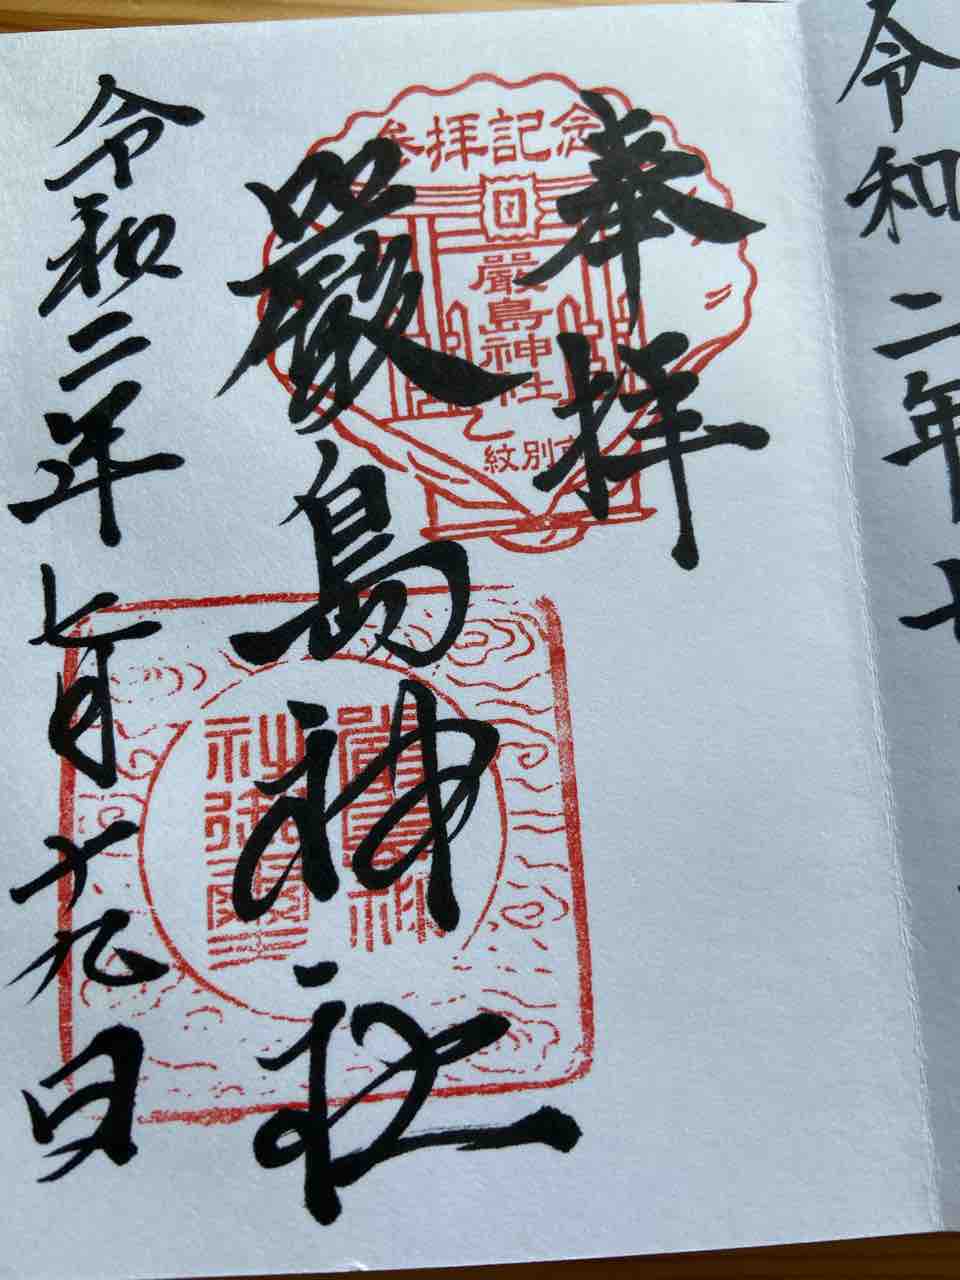 令和二年七
奉拝
参拝記念
嚴島神社
紋別市
嚴島神社
嚴島神
社御璽
令和二年七月十九日